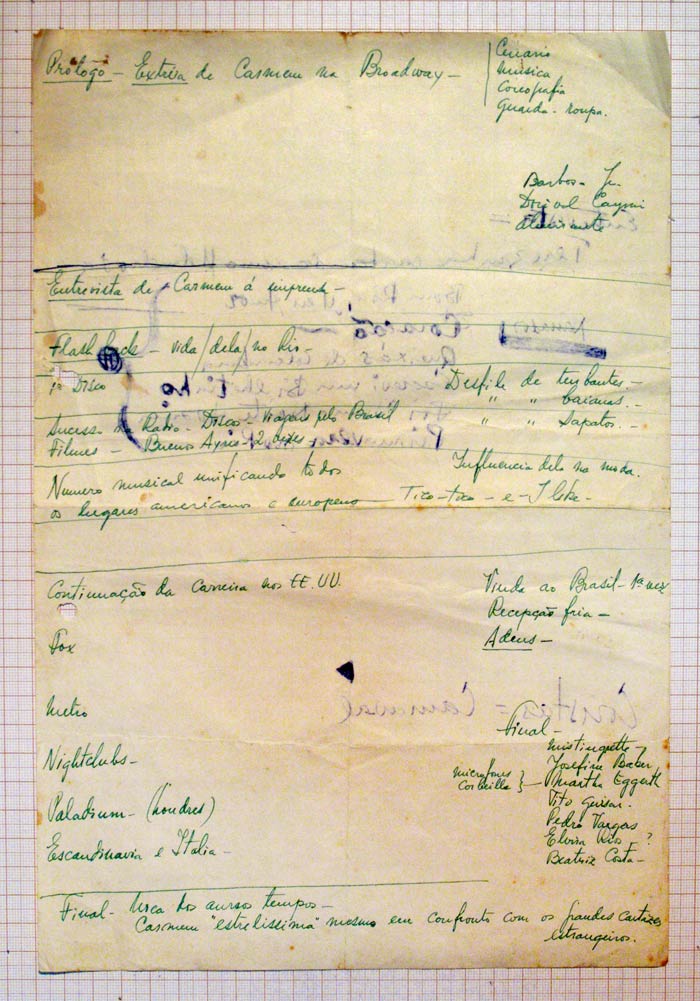 Prólogo - Extréia de Carmem na Broadway -
Cenario
Musica
Coreografia
Guarda-roupa.
Barbosa Jr.
Dorival Caymi
Entrevista de Carmem á imprensa -
Flash back - vida/dela/no Rio -
1º Disco
Desfile de turbantes. -
" " baianas. -
Sucesso na Radio - Disco - Viagens pelo Brasil
" " Sapatos. -
Filmes - Buenos Ayres - 2 vezes -
Influencia dela na moda.
Numero musical unificando todos
os lugares americanos e europeus - Tico-tico - e - I like -
Continuação da Carreira nos EE.UU.
Vinda ao Brasil - 1ª vez
Recepção fria -
Adeus -
Fox
Coristas = Carnaval
Metro
Final -
Mistinguette -
Nightclubs -
Josefina Baker,
microfones
Corbeille } - Martha Eggerth
Tito Guisar.
Paladium - (Londres)
Pedro Vargas
Elvira Rios - ?
Escandinavia e Italia -
Beatriz Costa -
Final - Urca dos aureos tempos -
Carmem "estrelissima" mesmo em confronto com os grandes cartazes
estrangeiros.